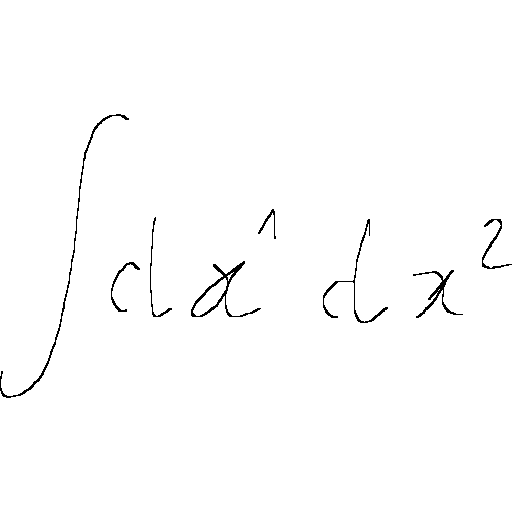 ∫ dx¹ dx²